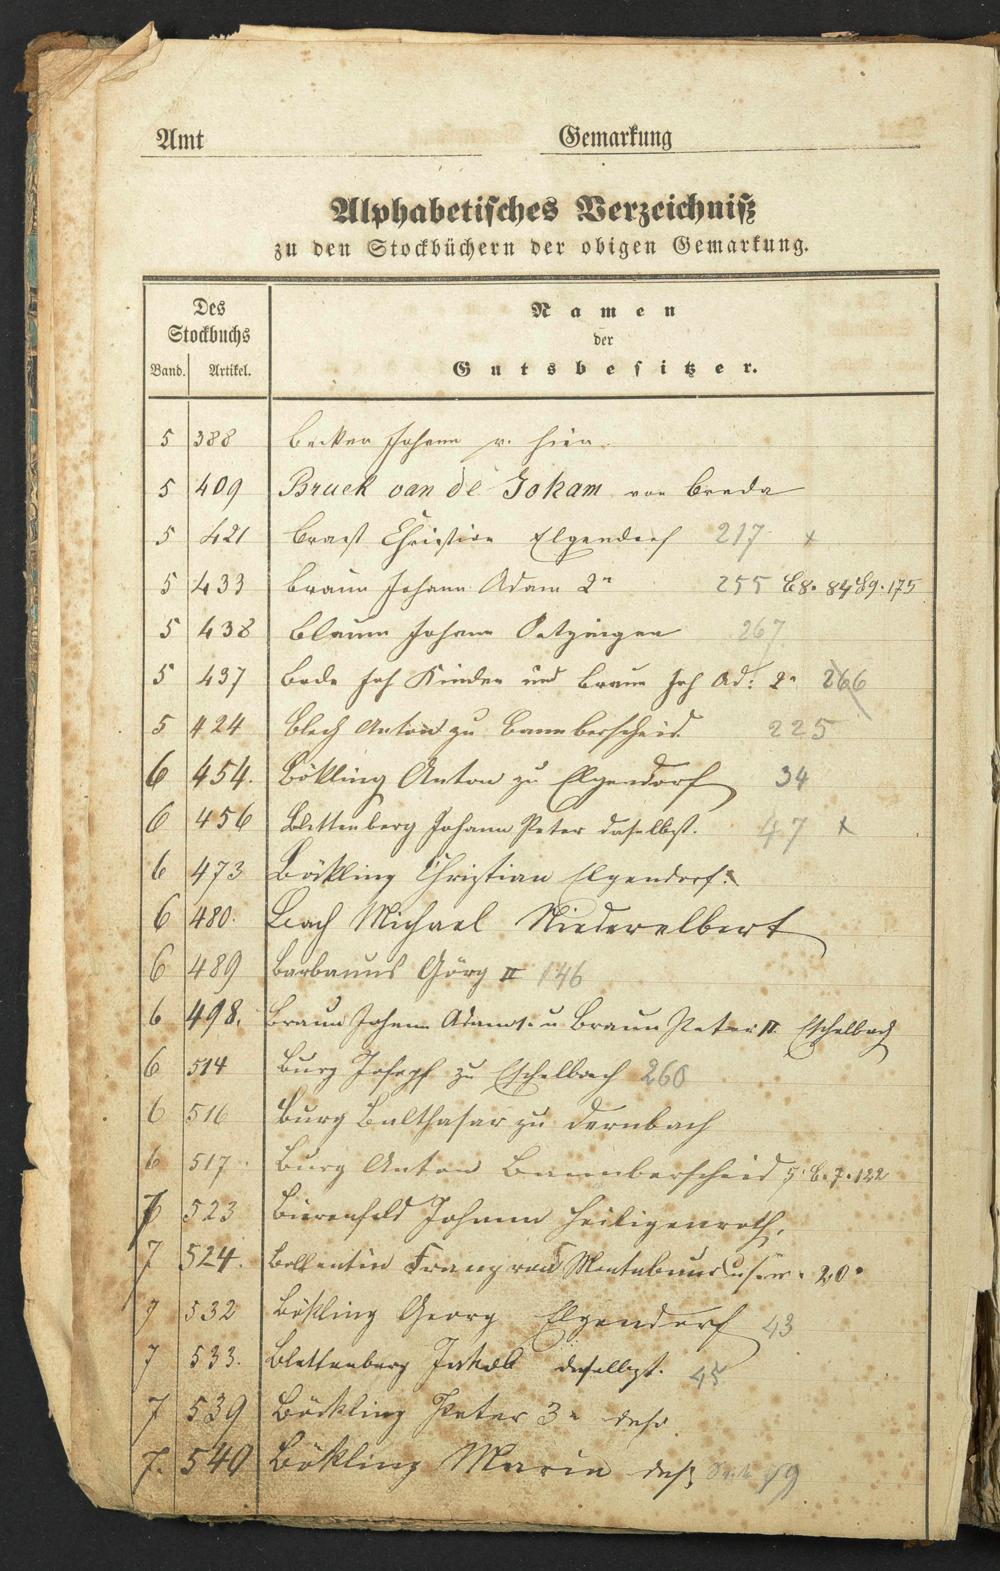 Amt Gemarkung
Alphabetisches Verzeichniß
zu den Stockbüchern der obigen Gemarkung.
Des
Stockbuchs
Band. Artikel.
Namen
der
Gutsbesitzer.
5 388 Becker Johann v. hier.
5 409 Bruck van de Jokam von Breda
5 421 Christian Elgendorf 217 x
5 433 Braun Johann Adam 2r 255 B 8. 84 B 9. 175
5 438 Blaum Johann Oetzingen 267
5 437 Bode Joh Kinder und Braun Joh Ad: 2r 266
5 424 Blech Anton zu Bannberscheid 225
6 454. Bökling Anton zu Elgendorf 34
6 456 Blettenberg Johann Peter daselbst. 47 x
6 473 Böckling Christian Elgendorf.
6 480. Bach Michael Niederelbert
6 489 Barbanus Görg II 146
6 498. Braun Johann Adam u Braun Peter II. Eschelbach
6 514 Burg Joseph zu Eschelbach 260
6 516 Burg Balthasar zu Dernbach
6 517. Burg Anton Bannberscheid B. 7. 122
7 523 Johann Heiligenroth.
7 524. Bellentin Franz von Montabaur 20
7 532 Bökling Georg Elgendorf 43
7 533. Blettenberg Jakob daselbst. 45
7 539 Böckling Peter 3r das.
7. 540 Bökling Maria das.